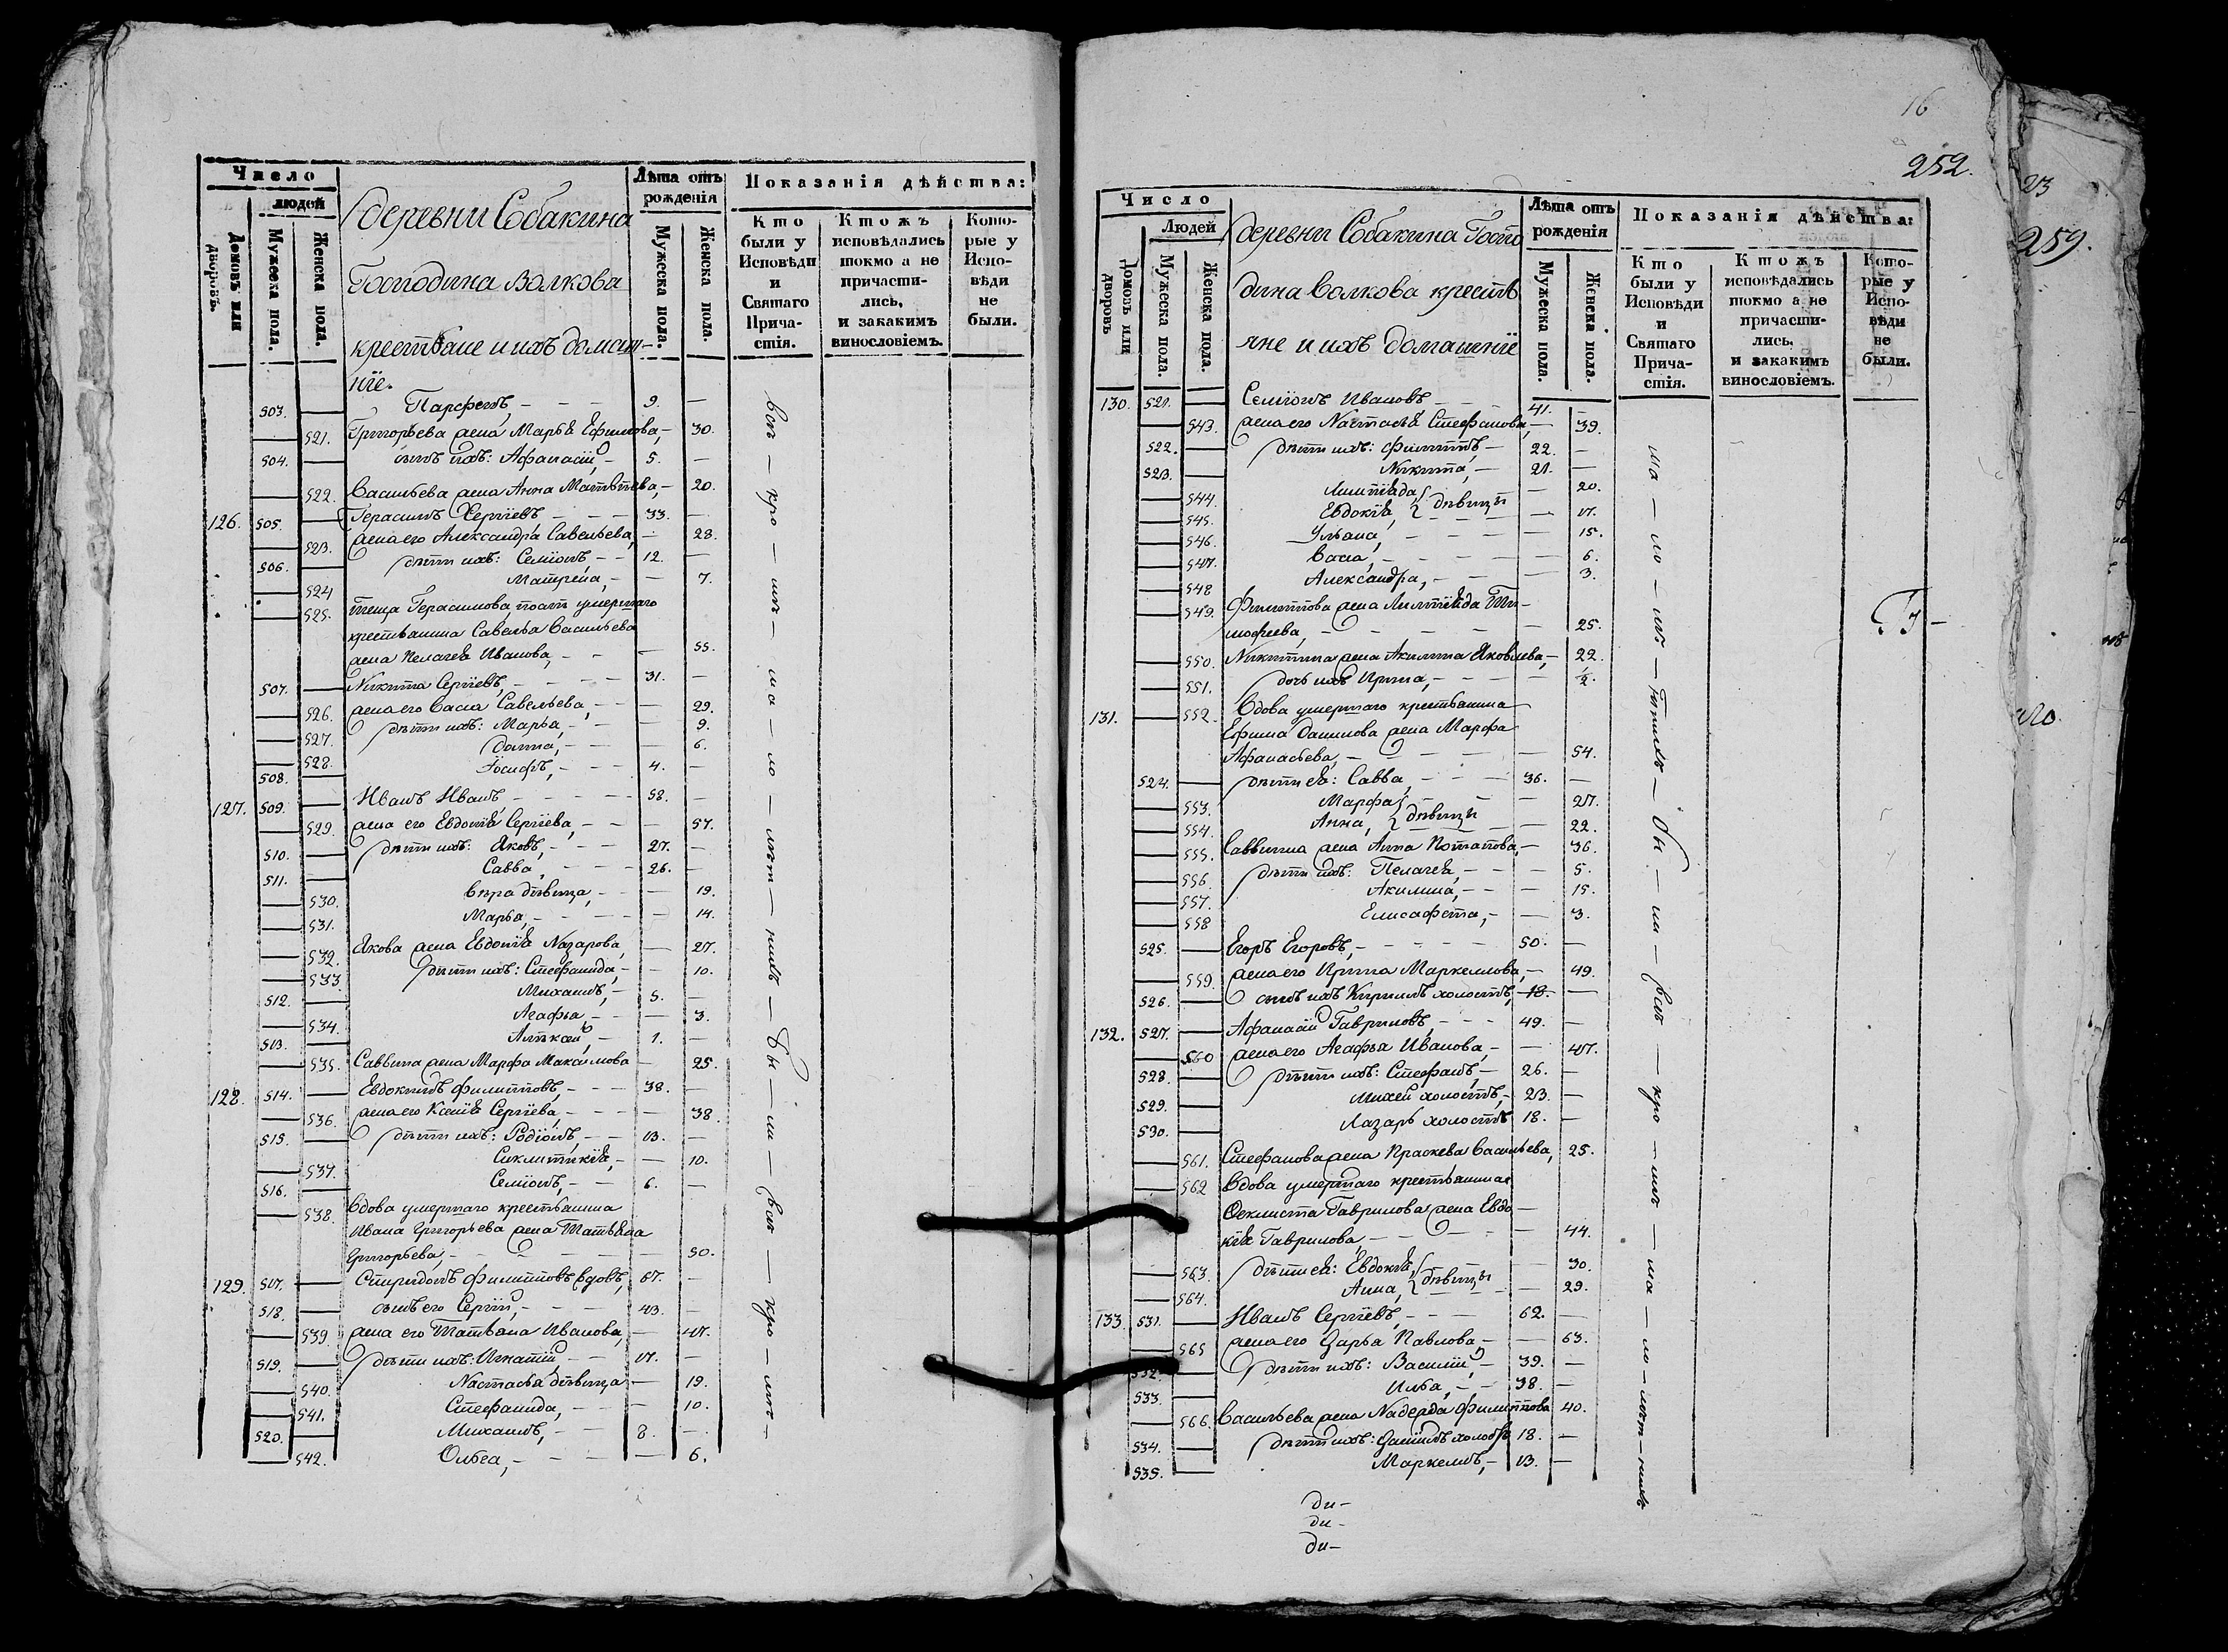 Число
людей
Домовъ или дворовъ.
Мужеска пола.
Женска пола.
деревни Собакина
Господина Волкова
крестьяне и ихъ домаш-
нïе.
Лѣта отъ рожденія
Мужеска пола.
Женска пола.
Показанія дѣйства:
Кто были у Исповѣди и Святаго Прича- стія.
Ктожъ исповѣдались токмо а не причасти- лись, и закакимъ винословіемъ.
Кото- рые у Испо- вѣди не были.
503. Парфенъ, 9.
521. Григорьева жена Марья Ефимова, 30.
504. сынъ ихъ: Афанасïй, 5.
522. Васильева жена Анна Матвѣева, 20.
126. 505. Герасимъ Сергïевъ 33.
523. жена его Александра Савельева, 28.
506. дѣти ихъ: Семïонъ, 12.
524 Матрена, 7.
525. теща Герасимова
умершаго
крестьянина Савелья Васильева
жена Пелагея Иванова, 55.
507. Никита Сергïевъ, 31.
526. жена его Васса Савельева, 29.
527. дѣти ихъ: Марья, 9.
528. 6.
508. Iосифъ, 4.
127. 509. Иванъ Ивановъ, 58.
529. жена его Евдокïя Сергïева, 57.
510. дѣти ихъ: Яковъ, 27.
511. Савва, 26.
530. Вѣра дѣвица, 19.
531. Марья, 14.
532. Якова жена Евдокïя Назарова, 27.
533. дѣти ихъ: Стефанида, 10.
512. Михаилъ, 5.
534. Агафья, 3.
513. Алѣксѣй, 1.
535. Саввина жена Марфа Максимова 25.
128. 514. Евдокимъ Филипповъ, 38.
536. жена его Ксенïя Сергïева, 38.
515. дѣти ихъ: Родïонъ, 13.
537. Сиклитикïя, 10.
516. Семïонъ, 6.
538. Вдова умершаго крестьянина
Ивана Григорьева жена Татьяна
Григорьева, 50.
129. 517. Спиридонъ Филипповъ вдовъ, 67.
518. сынъ его Сергïй, 43.
539. жена его Татьяна Иванова, 47.
519. дѣти ихъ: Игнатïй 17.
540. Настасья дѣвица 19.
541. Стефанида, 10.
520. Михаилъ, 8.
542. Ольга, 6.
16
252.
Число
Людей
Домовъ или дворовъ
Мужеска пола.
Женска пола.
деревни Собакина Госпо
дина Волкова крестья
яне и ихъ домашнïе
Лѣта отъ рожденія
Мужеска пола.
Женска пола.
Показанія дѣйства:
Кто были у Исповѣди и Святаго Прича- стія.
Ктожъ исповѣдались токмо а не причасти- лись, и закакимъ винословіемъ.
Кото- рые у Испо- вѣди не были.
130. 521. Семïонъ Ивановъ 41.
543. жена его Настасья Стефанова, 39.
522. дѣти ихъ: Филиппъ, 22.
523. Никита, 21.
544. Олимпïада, 20.
545. Евдокïя, дѣвицы 17.
546. Ульяна, 15.
547. Васса, 6.
548 Александра, 3.
549. Филиппова жена Олимпïада Ти-
мофеева, 25.
550. Никитина жена Акилина Яковлева, 22.
551. дочь ихъ Ирина,
131. 552. Вдова умершаго крестьянина
Ефима Данилова жена Марфа
Афанасьева, 54.
524. дѣти ея: Савва, 36.
553. Марфа 27.
554. Анна, дѣвицы 22.
555. Саввина жена Анна Потапова, 36.
556. дѣти ихъ: Пелагея, 5.
557. Акилина, 15.
558 Елисафета, 3.
525. Егоръ Егоровъ, 50.
559. жена его Ирина Маркеллова, 49.
526. сынъ ихъ Кириллъ холостъ, 18.
132. 527. Афанасïй Гавриловъ, 49.
560 жена его Агафья Иванова, 47.
528. дѣти ихъ: Стефанъ, 26.
529. Михей холостъ, 23.
530. Лазарь холостъ 18.
561. Стефанова жена Праскева Васильева, 25.
562 Вдова умершаго крестьянина
Феклиста Гаврилова жена Евдо
кïя Гаврилова, 44.
563. дѣти ея: Евдокïя, 30.
564. Анна, дѣвицы 29.
133. 531. Иванъ Сергïевъ, 62.
565 жена его Дарья Павлова, 63.
532. дѣти ихъ: Василïй, 39.
533. Илья, 38.
566. Васильева жена Надежда Филиппова 40.
534. дѣти ихъ: Данïилъ холостъ 18.
535. Маркеллъ, 13.
ди-
ди-
ди-
23
259.